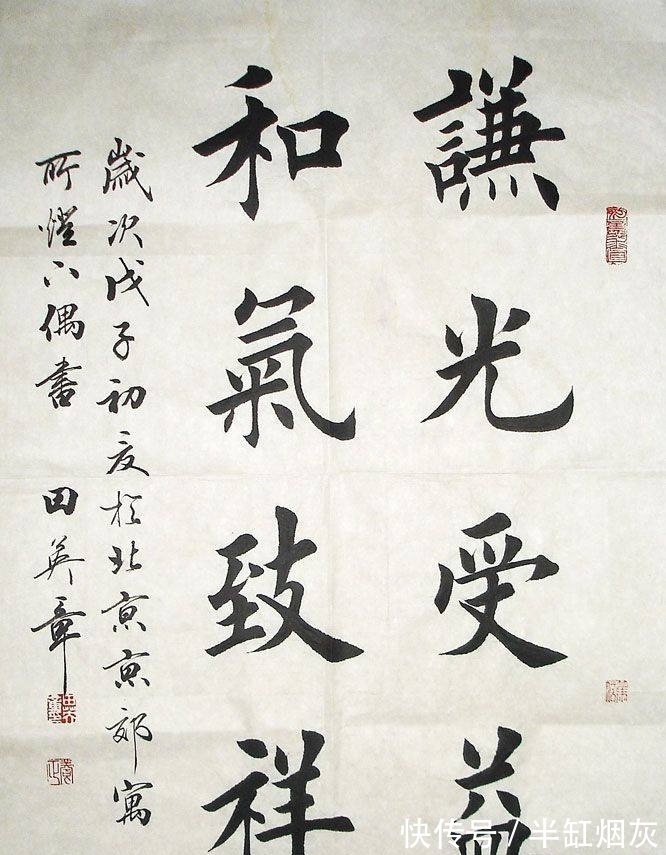 謙光受益
和氣致祥
歲次戊子初夏於北京京郊寓
所燈下偶書 田英章
快传号/半缸烟灰